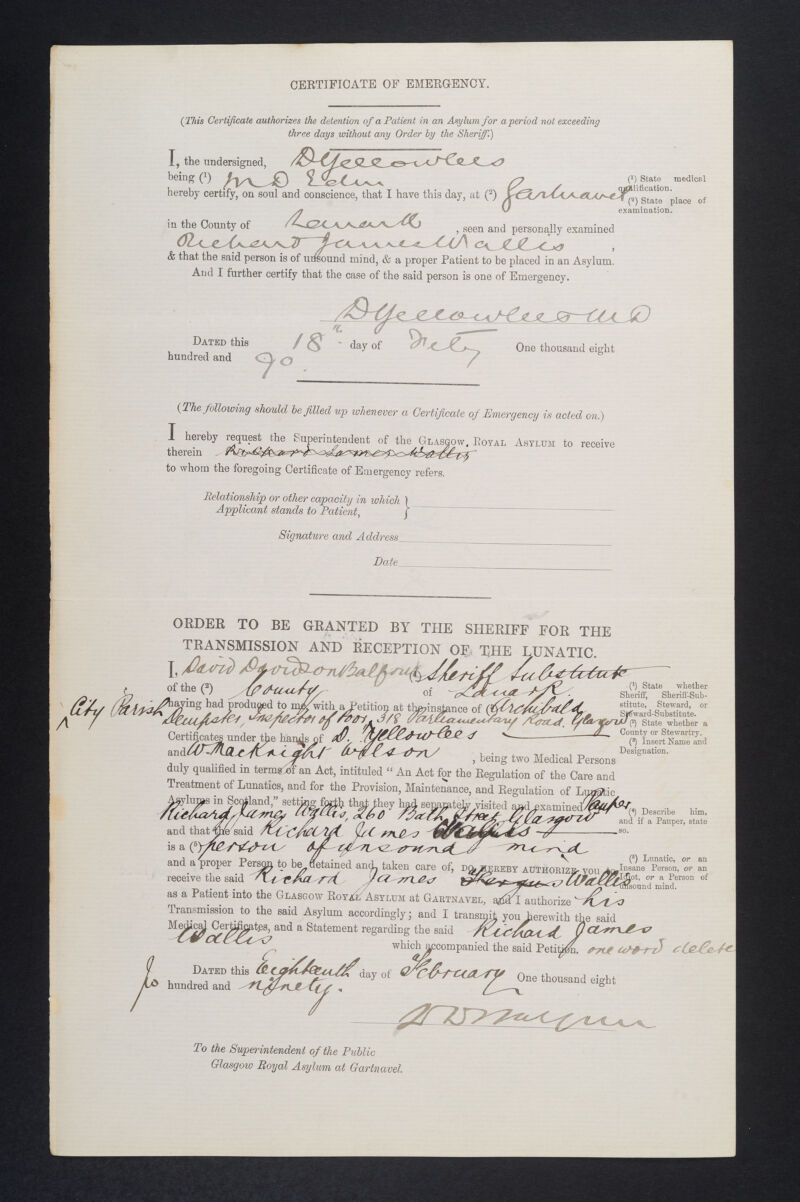 CERTIFICATE OF EMERGENCY.
(This Certificate authorizes the detention of a Patient in an Asylum for a period not exceeding
three days without any Order by the Sheriff.)
I, the undersigned, D Yellowlees
being (¹) M D Edin
(¹) State medical qualification.
hereby certify, on soul and conscience, that I have this day, at (²) Gartnavel
(²) State place of examination.
in the County of Lanark , seen and personally examined
Richard James Wallis ,
& that the said person is of unsound mind, & a proper Patient to be placed in an Asylum.
And I further certify that the case of the said person is one of Emergency.
D Yellowlees M D
DATED this 18th day of Feby One thousand eight
hundred and 90.
(The following should be filled up whenever a Certificate of Emergency is acted on.)
I hereby request the Superintendent of the GLASGOW ROYAL ASYLUM to receive
therein Richard James Wallis
to whom the foregoing Certificate of Emergency refers.
Relationship or other capacity in which
Applicant stands to Patient, }
Signature and Address
Date
ORDER TO BE GRANTED BY THE SHERIFF FOR THE
TRANSMISSION AND RECEPTION OF THE LUNATIC.
I, David Davidson Balfour (¹) Sheriff Substitute
of the (²) County of Lanark
(¹) State whether Sheriff, Sheriff-Substitute, Steward, or Steward-Substitute.
having had produced to me, with a Petition at the instance of (³) Archibald
City Parish
Dempster, Inspector of Poor, 318 Parliamentary Road, Glasgow
(²) State whether a County or Stewartry.
Certificates under the hands of D. Yellowlees
(³) Insert Name and Designation.
and W MacKnight Wilson , being two Medical Persons
duly qualified in terms of an Act, intituled "An Act for the Regulation of the Care and
Treatment of Lunatics, and for the Provision, Maintenance, and Regulation of Lunatic
Asylums in Scotland," setting forth that they had separately visited and examined Pauper,
Richard James Wallis, 260 Bath Street, Glasgow
(⁴) Describe him, and if a Pauper, state so.
and that the said Richard James Wallis
is a (⁵) person of unsound mind
and a proper Person to be detained and taken care of, DO HEREBY AUTHORIZE you to
(⁵) Lunatic, or an Insane Person, or an Idiot, or a Person of unsound mind.
receive the said Richard James Wallis
as a Patient into the GLASGOW ROYAL ASYLUM AT GARTNAVEL, and I authorize his
Transmission to the said Asylum accordingly; and I transmit you herewith the said
Medical Certificates, and a Statement regarding the said Richard James
Wallis which accompanied the said Petition. one word delete
DATED this Eighteenth day of February One thousand eight
hundred and ninety.
To the Superintendent of the Public
Glasgow Royal Asylum at Gartnavel.